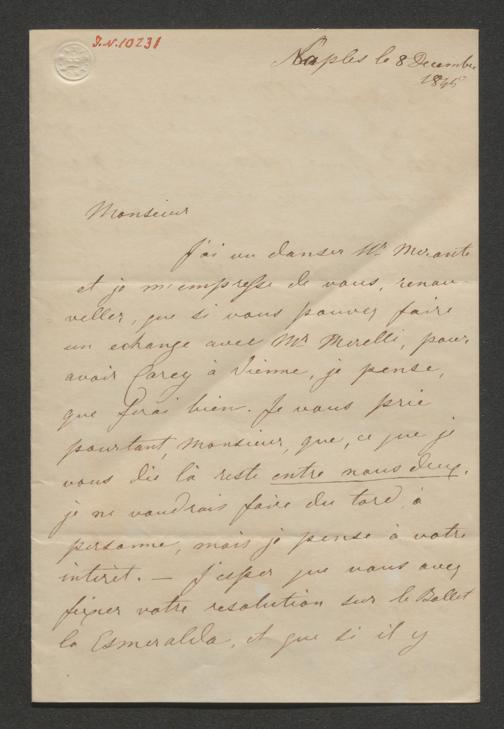 I.N.10231
Naples le 8 Decembre
1845
Monsieur
J'ai vu danser Mr. Merante
et je m'empresse de vous, renou-
veller, que si vous pouvez faire
un echange avec Mr Merelli, pour,
avoir Carey à Vienne, je pense,
que serai bien. Je vous prie
pourtant Monsieur, que, ce que je
vous die là reste entre nous deux,
je ne voudrais faire du tord, à
personne, mais je pense à votre
interêt. — J'esper que vous avez
fixner votre resolution sur le Ballet
la Esmeralda, et que si il y